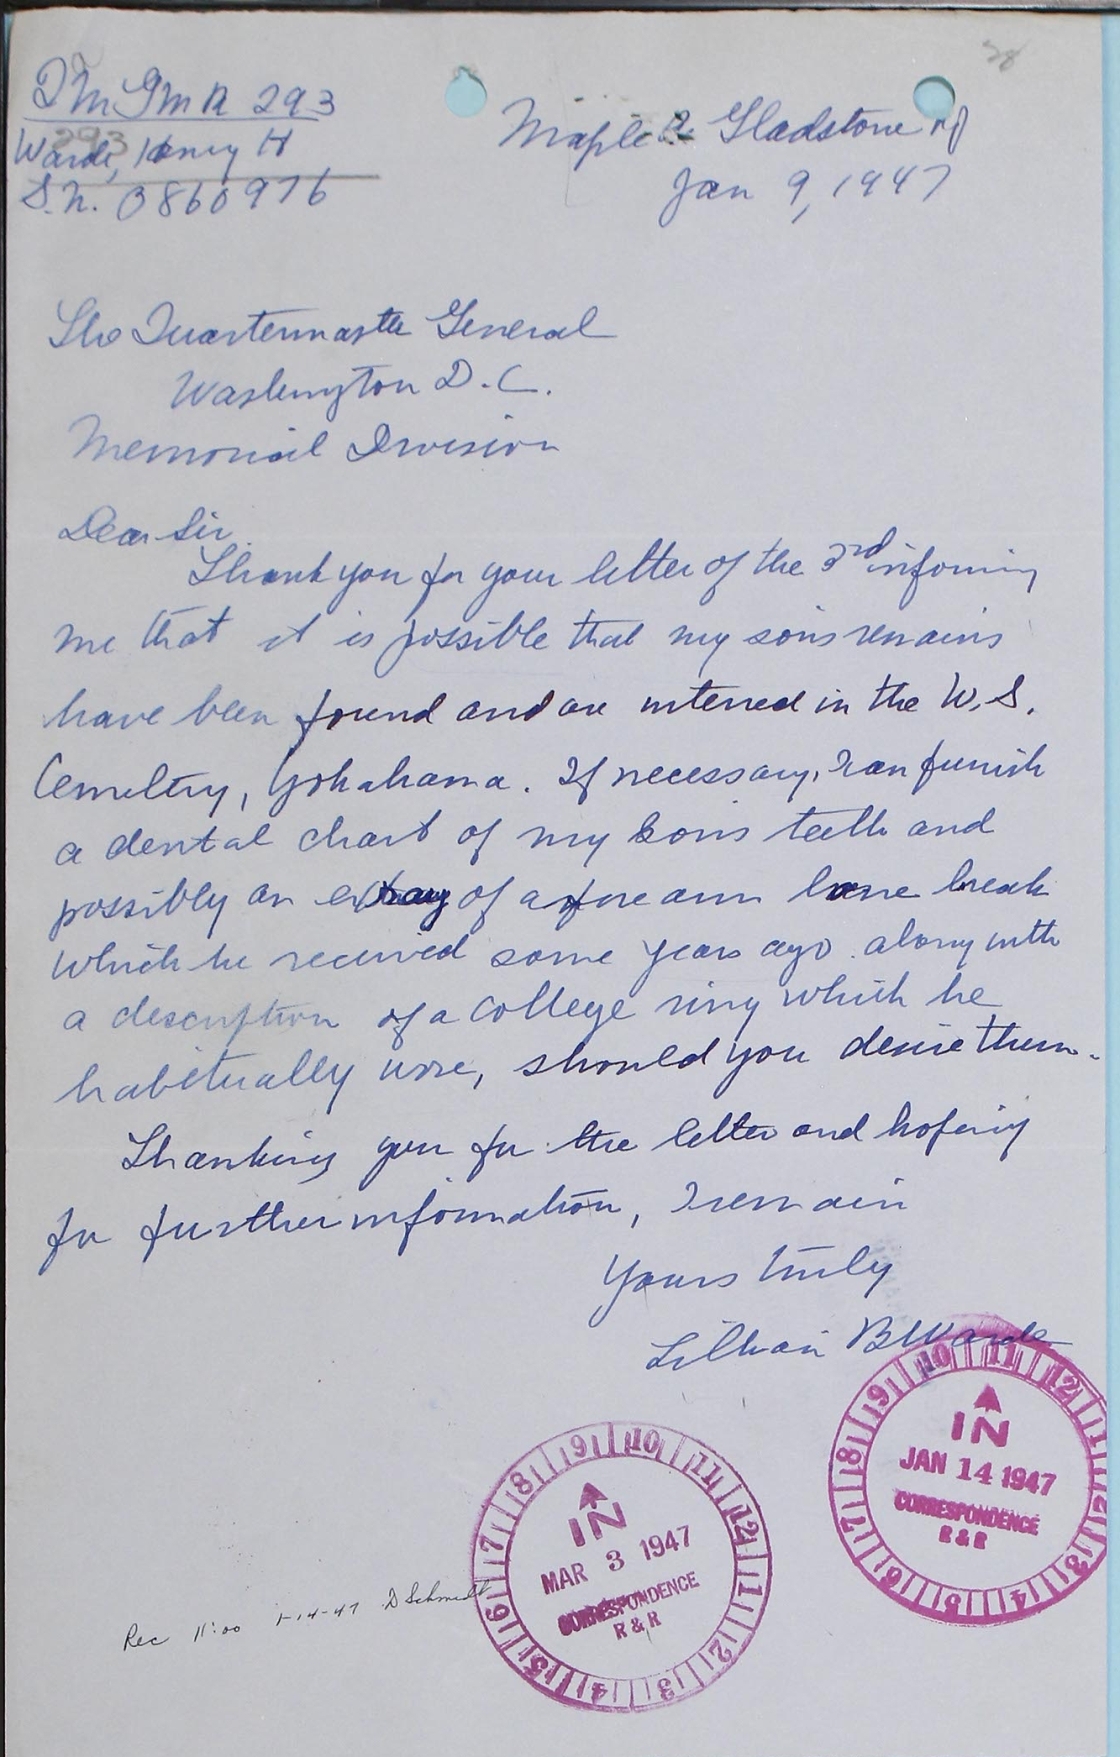 QMGMR 293
293
Warde, Henry H
S.N. 0860976
Maple & Gladstone Rd
Jan 9, 1947
The Quartermaster General
Washington D.C.
Memorial Division
Dear Sir.
Thank you for your letter of the 3rd informing
me that it is possible that my sons remains
have been found and are interred in the U.S.
Cemeltry, Yokahama. If necessary, I can furnish
a dental chart of my sons teeth and
possibly an exray of a fore arm bone break
which he received some years ago along with
a description of a college ring which he
habitually wore, should you desire them.
Thanking you for the letter and hoping
for further information, I remain
Yours truly
Lillian B Warde
10 11 12 1 2 3 4 5 6 7 8 9
IN
JAN 14 1947
CORRESPONDENCE
R & R
9 10 11 12 1 2 3 4 5 6 7 8
IN
MAR 3 1947
CORRESPONDENCE
R & R
Rec 11:00 1-14-47 D Schmidt